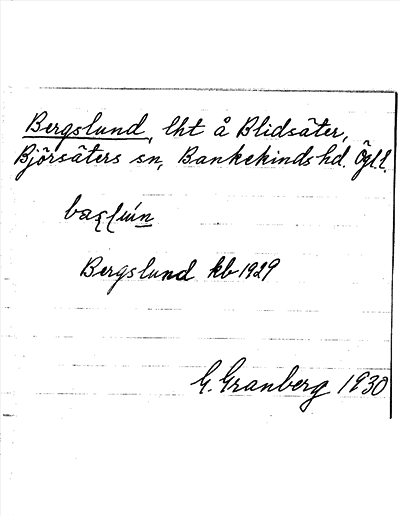 Bergslund, lht å Blidsäter,
Björsäters sn, Bankekinds hd. Ögl.
Bergslund kb 1929
G. Granberg 1930